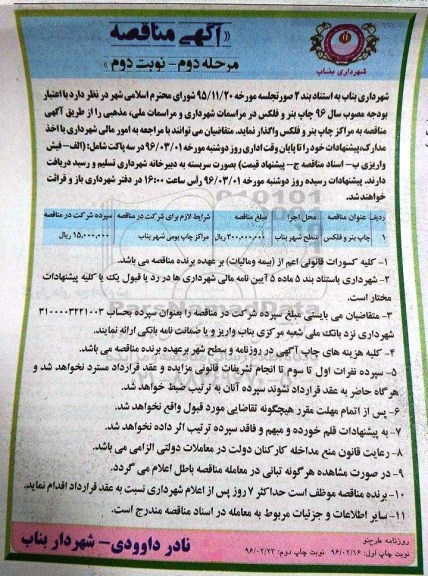 «آگهی مناقصه
مرحله دوم- نوبت دوم»
شهرداری بناب
شهرداری بناب به استناد بند ۲ صورتجلسه مورخه ۹۵/۱۱/۲۰ شورای محترم اسلامی شهر در نظر دارد با اعتبار
بودجه مصوب سال ۹۶ چاپ بنر و فلکس در مراسمات شهرداری و مراسمات ملی، مذهبی را از طریق آگهی
مناقصه به مراکز چاپ بنر و فلکس واگذار نماید. متقاضیان می توانند با مراجعه به امور مالی شهرداری با اخذ
مدارک، پیشنهادات خود را تا پایان وقت اداری روز دوشنبه مورخه ۹۶/۰۳/۰۱ در سه پاک شامل: (الف- فیش
واریزی ب- اسناد مناقصه ج- پیشنهاد قیمت) بصورت سربسته به دبیرخانه شهرداری تسلیم و رسید دریافت
دارند. پیشنهادات رسیده روز دوشنبه مورخه ۹۶/۰۳/۰۱ رأس ساعت ۱۶:۰۰ در دفتر شهرداری باز و قرائت
خواهند شد.
ردیف عنوان مناقصه محل اجرا مبلغ مناقصه شرایط لازم برای شرکت در مناقصه سپرده شرکت در مناقصه
۱ چاپ بنر و فلکس سطح شهر بناب ۳۰۰,۰۰۰,۰۰۰ ریال مراکز چاپ بومی شهر بناب ۱۵,۰۰۰,۰۰۰ ریال
۱- کلیه کسورات قانونی اعم از (بیمه ومالیات) بر عهده برنده مناقصه می باشد.
۲- شهرداری باستناد بند ۵ ماده ۵ آیین نامه مالی شهرداری ها در رد یا قبول یک یا کلیه پیشنهادات
مختار است.
۳- متقاضیان می بایستی مبلغ سپرده شرکت در مناقصه را بعنوان سپرده بحساب ۳۱۰۰۰۰۳۲۲۱۰۰۲
شهرداری نزد بانک ملی شعبه مرکزی بناب واریز و یا ضمانت نامه بانکی ارائه نمایند.
۴- کلیه هزینه های چاپ آگهی در روزنامه و سطح شهر برعهده برنده مناقصه می باشد.
۵- سپرده نفرات اول تا سوم تا انجام تشریفات قانونی مزایده و عقد قرارداد مسترد نخواهد شد و
هرگاه حاضر به عقد قرارداد نشوند سپرده آنان به ترتیب ضبط خواهد شد.
۶- پس از اتمام مهلت مقرر هیچگونه تقاضایی مورد قبول واقع نخواهد شد.
۷- به پیشنهادات قلم خورده و مبهم و فاقد سپرده ترتیب اثر داده نخواهد شد.
۸- رعایت قانون منع مداخله کارکنان دولت در معاملات دولتی الزامی می باشد.
۹- در صورت مشاهده هرگونه تبانی در معامله مناقصه باطل اعلام می گردد.
۱۰- برنده مناقصه موظف است حداکثر ۷ روز پس از اعلام شهرداری نسبت به عقد قرارداد اقدام نماید.
۱۱- سایر اطلاعات و جزئیات مربوط به معامله در اسناد مناقصه مندرج است.
روزنامه طرح نو
نوبت چاپ اول: ۹۶/۰۲/۱۶ نوبت چاپ دوم: ۹۶/۰۲/۲۳
نادر داوودی- شهردار بناب